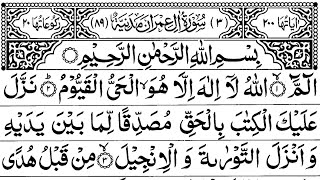 اٰیَاتُهَا ۲۰۰ (۳) سُوْرَةُ اٰلِ عِمْرٰنَ مَدَنِیَّةٌ (۸۹) رُكُوْعَاتُهَا ۲۰
بِسْمِ اللّٰهِ الرَّحْمٰنِ الرَّحِیْمِ
الٓمَّٓ ۙ﴿۱﴾ اللّٰهُ لَاۤ اِلٰهَ اِلَّا هُوَ الْحَیُّ الْقَیُّوْمُ ؕ﴿۲﴾ نَزَّلَ
عَلَیْكَ الْكِتٰبَ بِالْحَقِّ مُصَدِّقًا لِّمَا بَیْنَ یَدَیْهِ
وَ اَنْزَلَ التَّوْرٰىةَ وَ الْاِنْجِیْلَ ۙ﴿۳﴾ مِنْ قَبْلُ هُدًی